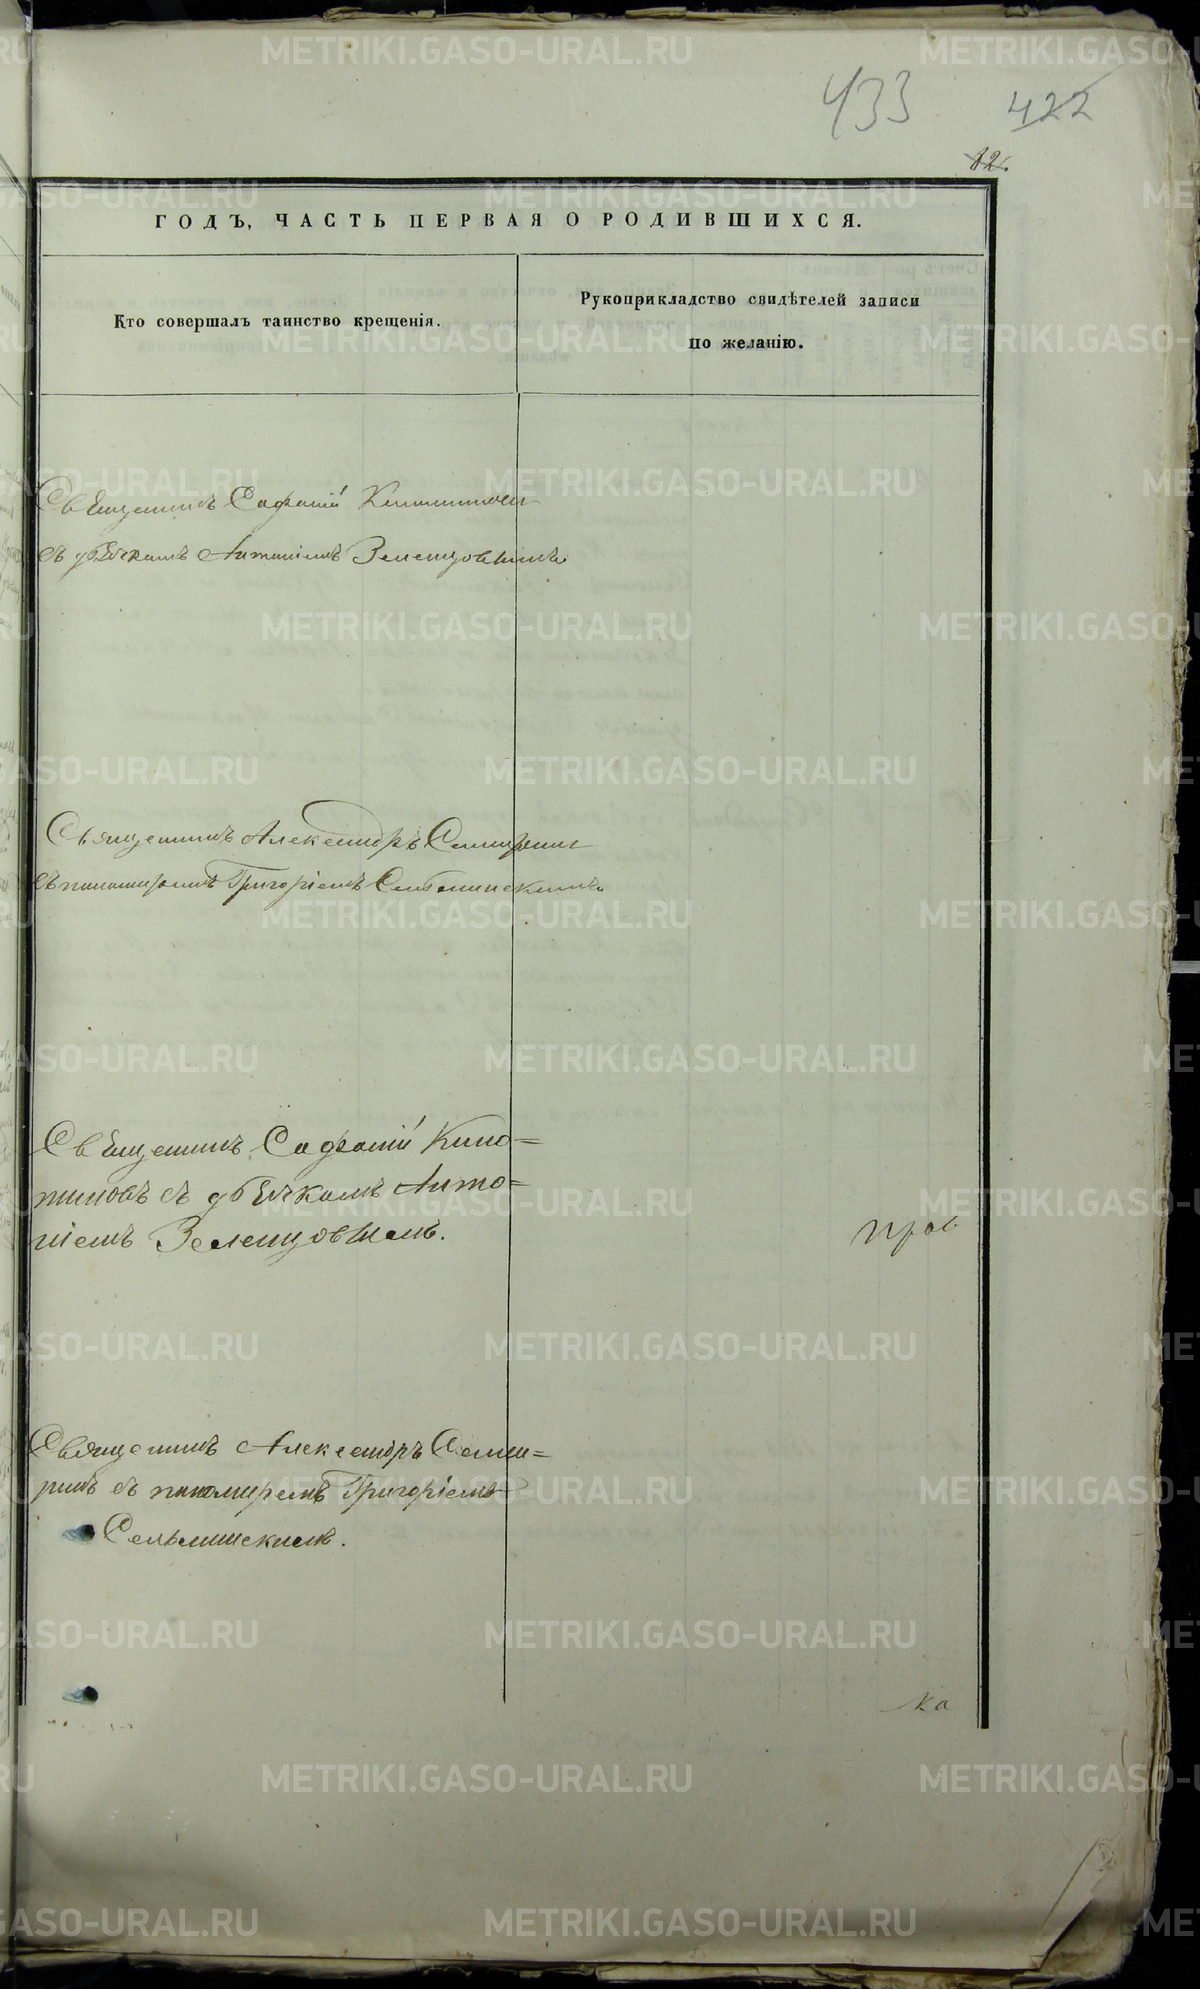 433 422
12.
ГОДЪ, ЧАСТЬ ПЕРВАЯ О РОДИВШИХСЯ.
Кто совершалъ таинство крещенія.
Рукоприкладство свидѣтелей записи
по желанію.
Священникъ Софоній
съ дьячкомъ Антоніемъ Зеленцовымъ
Священникъ Александръ
съ пономаремъ Григоріемъ Сельминскимъ
Священникъ Софоній
съ дьячкомъ Анто-
ніемъ Зеленцовымъ.
Священникъ Александръ
съ пономаремъ Григоріемъ
Сельминскимъ.
METRIKI.GASO-URAL.RU